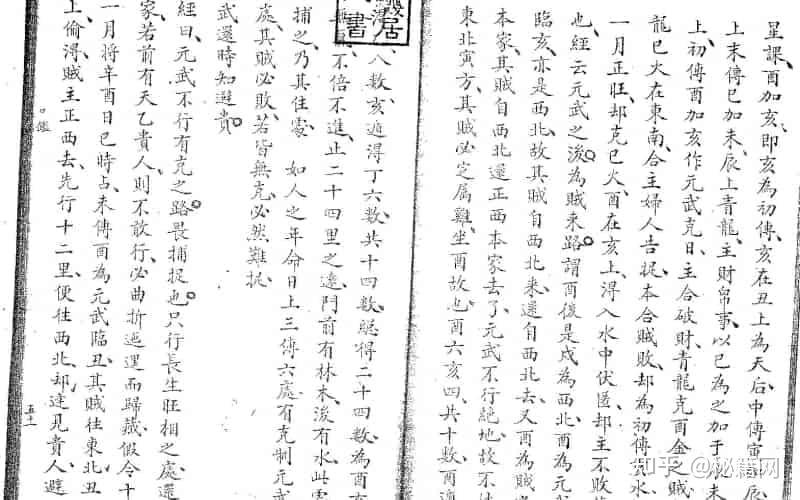 星課酉加亥即亥為初傳亥在丑上為天后中傳
上末傳巳加未辰上青龍主財帛事以巳為之加于未
上初傳酉加亥作元武克日主合破財青龍克酉金之賊
龍巳火在東南合主婦人告捉本合賊敗却為初傳亥水
一月正旺却克巳火酉在亥上淂入水中伏匿却主不敗
也經云元武之後為賊來路謂酉後是戌為西北酉為元
臨亥亦是西北故其賊自西北来還自西北去又酉為
本家其賊自西北還正西本家去了元武不行絶地故不
東北寅方其賊必定属雞坐酉故也酉六亥四共十數酉
八數亥近得丁六數共十四數總得二十四數為酉
不倍不進止二十四里之遠門前有林木後有水此
捕之乃其住處 如人之年命日上三傳六處有克制元武
處其賊必敗若皆無克必然難捉
武還時知避貴
經曰元武不行有克之路畏捕捉也只行長生旺相之處還
家若前有天乙貴人則不敢行必曲折迤邐而歸藏假令十
一月将辛酉日巳時占末傳酉為元武臨丑其賊往東北丑
上偷得賊主正西去先行十二里便往西北却逢見貴人避
鑑
五十一
居
書
知乎 @秘籍网